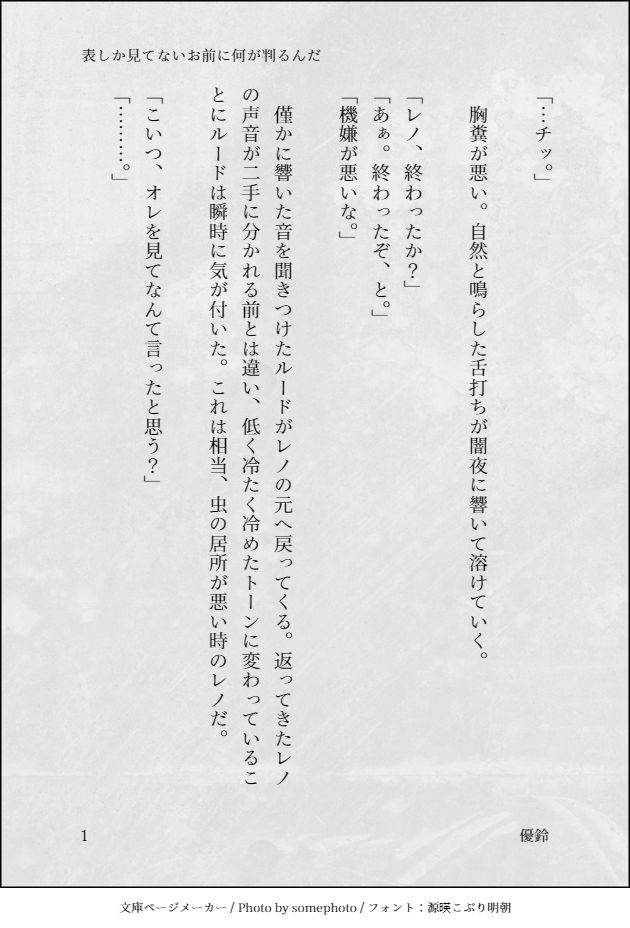 表しか見てないお前に何が判るんだ
「…チッ。」
胸糞が悪い。自然と鳴らした舌打ちが闇夜に響いて溶けていく。
「レノ、終わったか?」
「あぁ。終わったぞ、と。」
「機嫌が悪いな。」
僅かに響いた音を聞きつけたルードがレノの元へ戻ってくる。返ってきたレノ
の声音が二手に分かれる前とは違い、低く冷たく冷めたトーンに変わっているこ
とにルードは瞬時に気が付いた。これは相当、虫の居所が悪い時のレノだ。
「こいつ、オレを見てなんて言ったと思う?」
「………。」
1
優鈴
文庫ページメーカー / Photo by somephoto / フォント：源暎こぶり明朝